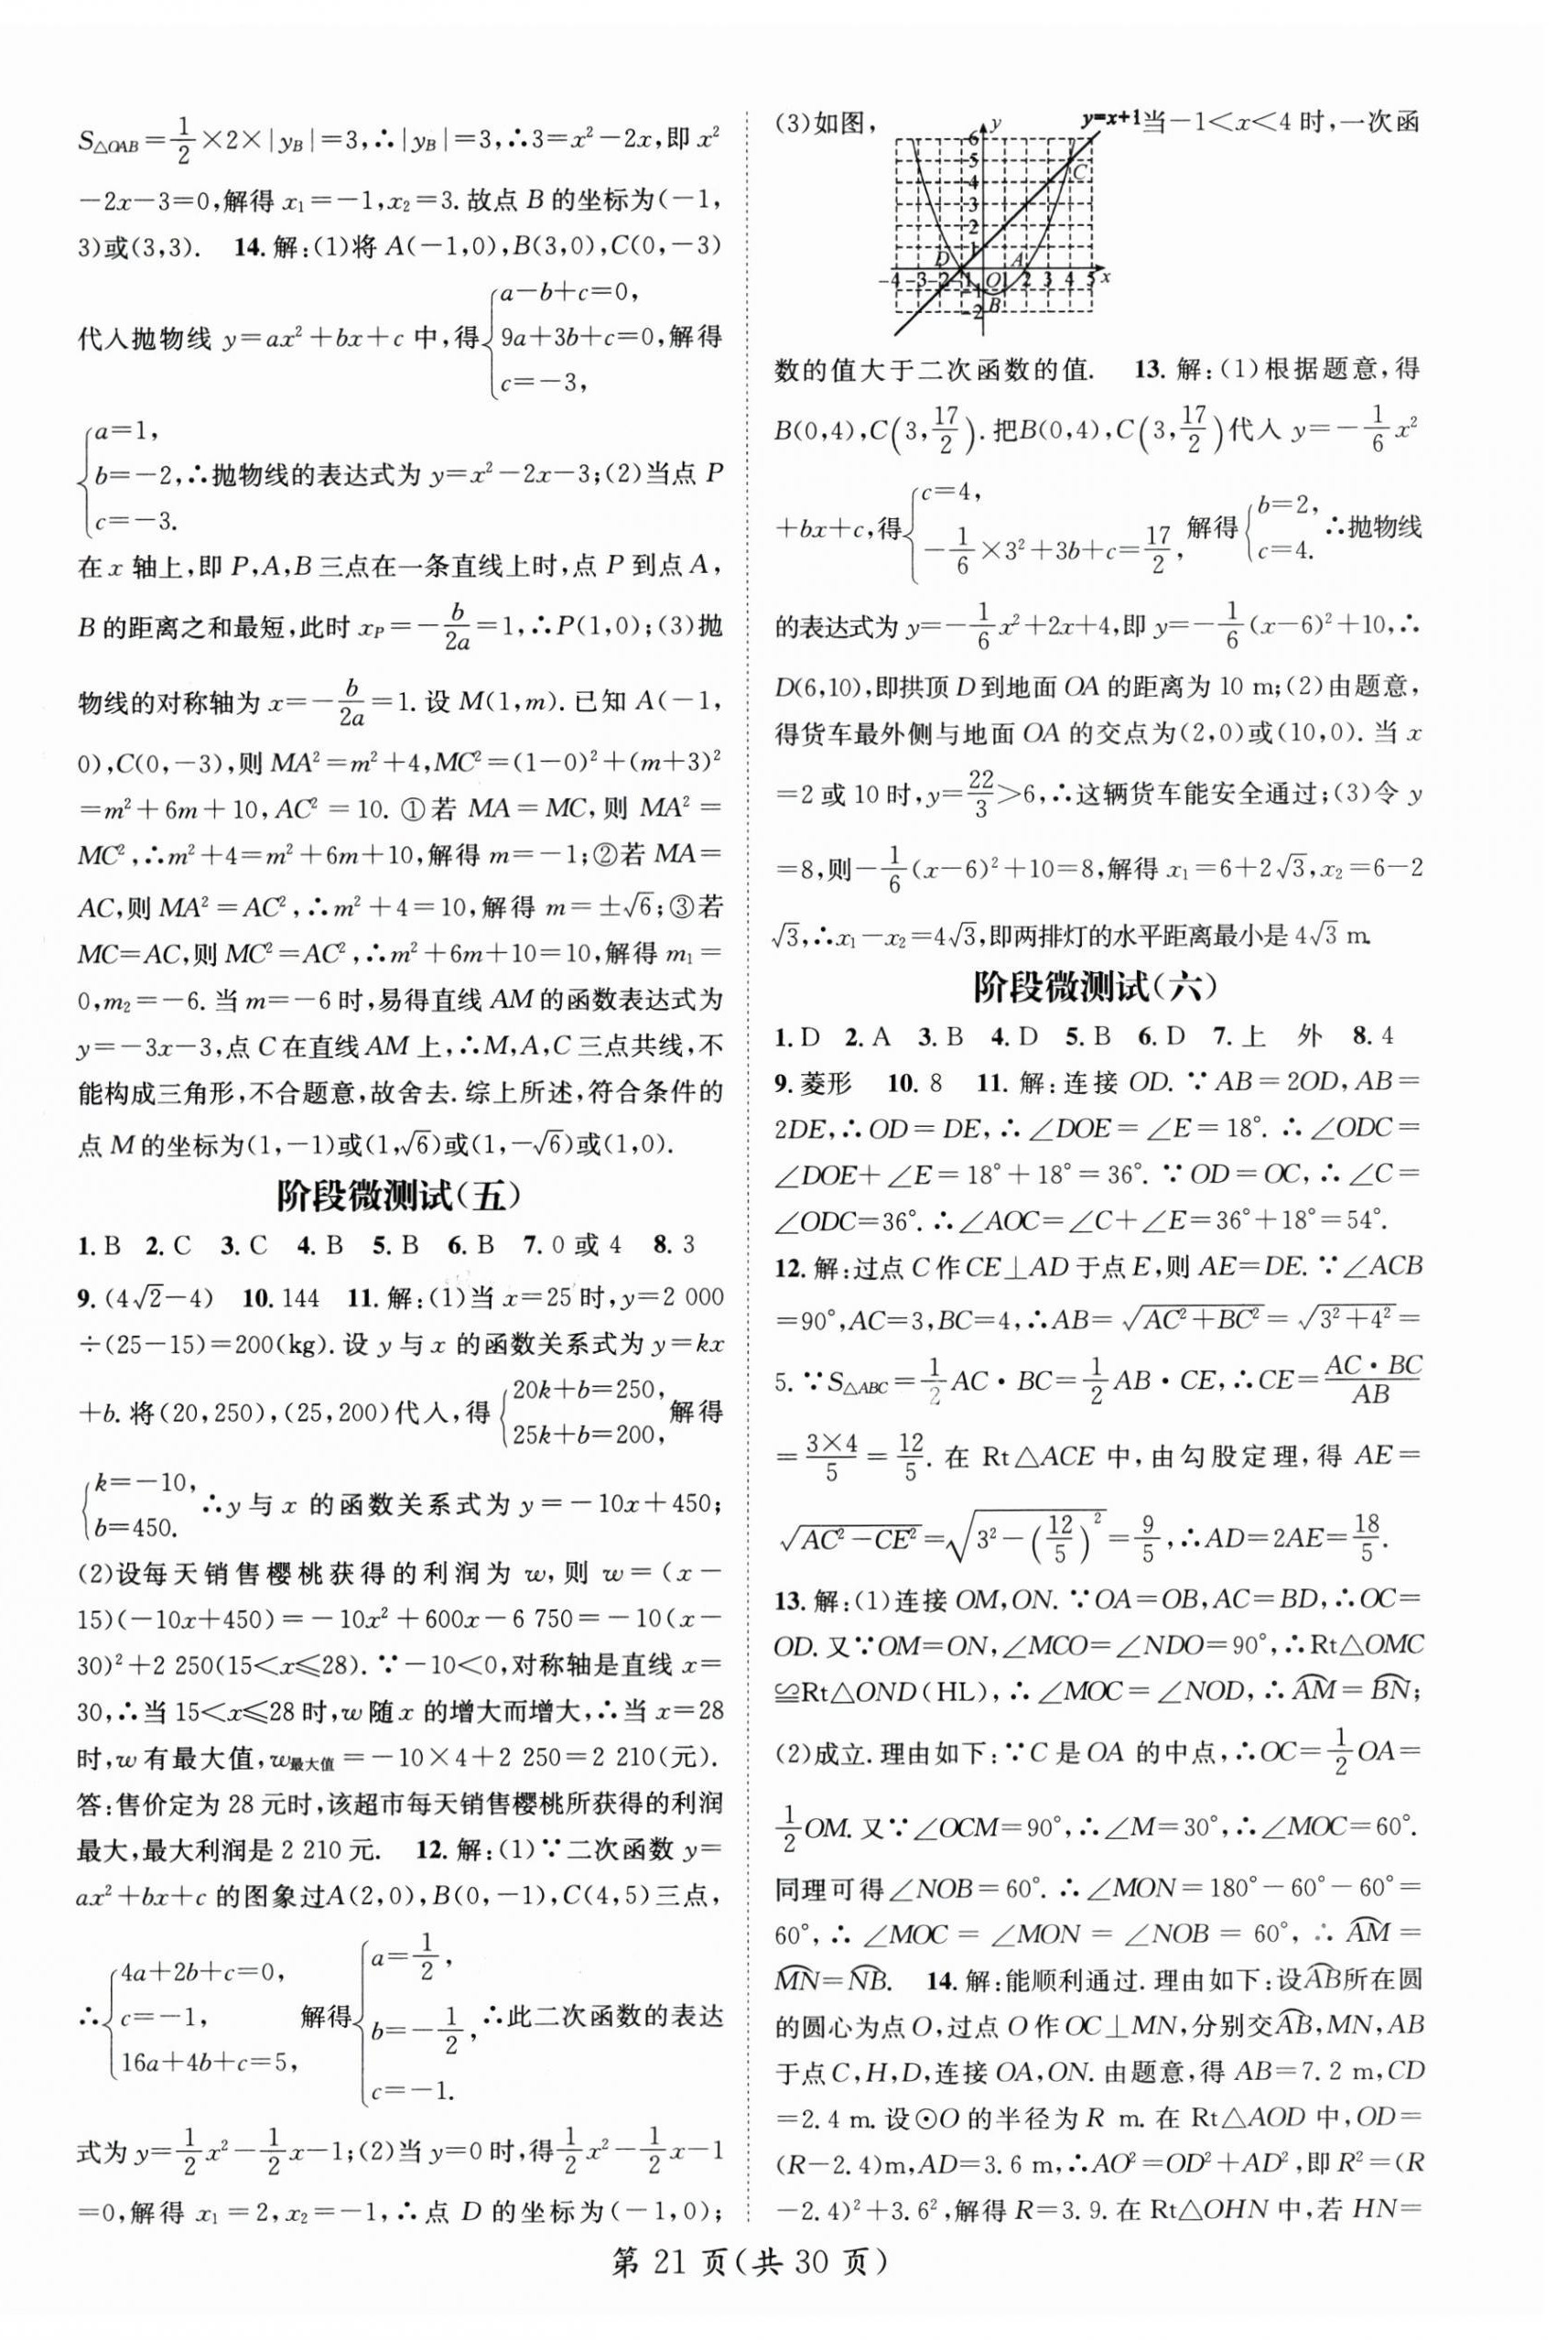 S△OAB=1/2×2×|yB|=3,∴|yB|=3,∴3=x²-2x,即 x²
-2x-3=0,解得 x₁=-1,x₂=3.故点 B 的坐标为(-1,
3)或(3,3). 14.解:(1)将 A(-1,0),B(3,0),C(0,-3)
代入抛物线 y=ax²+bx+c 中,得{a-b+c=0, 9a+3b+c=0, c=-3, 解得
{a=1, b=-2, c=-3. ∴抛物线的表达式为 y=x²-2x-3;(2)当点 P
在 x 轴上,即 P,A,B 三点在一条直线上时,点 P 到点 A,
B 的距离之和最短,此时 xP=-b/2a=1,∴P(1,0);(3)抛
物线的对称轴为 x=-b/2a=1.设 M(1,m).已知 A(-1,
0),C(0,-3),则 MA²=m²+4,MC²=(1-0)²+(m+3)²
=m²+6m+10,AC²=10.①若 MA=MC,则 MA²=
MC²,∴m²+4=m²+6m+10,解得 m=-1;②若 MA=
AC,则 MA²=AC²,∴m²+4=10,解得 m=±√6;③若
MC=AC,则 MC²=AC²,∴m²+6m+10=10,解得 m₁=
0,m₂=-6.当 m=-6 时,易得直线 AM 的函数表达式为
y=-3x-3,点 C 在直线 AM 上,∴M,A,C 三点共线,不
能构成三角形,不合题意,故舍去.综上所述,符合条件的
点 M 的坐标为(1,-1)或(1,√6)或(1,-√6)或(1,0).
阶段微测试(五)
1.B 2.C 3.C 4.B 5.B 6.B 7.0 或 4 8.3
9.(4√2-4) 10.144 11.解:(1)当 x=25 时,y=2 000
÷(25-15)=200(kg).设 y 与 x 的函数关系式为 y=kx
+b.将(20,250),(25,200)代入,得{20k+b=250, 25k+b=200, 解得
{k=-10, b=450. ∴y 与 x 的函数关系式为 y=-10x+450;
(2)设每天销售樱桃获得的利润为 w,则 w=(x-
15)(-10x+450)=-10x²+600x-6 750=-10(x-
30)²+2 250(15<x≤28).∵-10<0,对称轴是直线 x=
30,∴当 15<x≤28 时,w 随 x 的增大而增大,∴当 x=28
时,w 有最大值,w最大值=-10×4+2 250=2 210(元).
答:售价定为 28 元时,该超市每天销售樱桃所获得的利润
最大,最大利润是 2 210 元. 12.解:(1)∵二次函数 y=
ax²+bx+c 的图象过A(2,0),B(0,-1),C(4,5)三点,
∴{4a+2b+c=0, c=-1, 16a+4b+c=5, 解得{a=1/2, b=-1/2, c=-1. ∴此二次函数的表达
式为 y=1/2x²-1/2x-1;(2)当 y=0 时,得1/2x²-1/2x-1
=0,解得 x₁=2,x₂=-1,∴点 D 的坐标为(-1,0);
(3)如图, y=x+1 当-1<x<4 时,一次函
y
6
5
C
4
3
2
1
D A
-4 -3 -2 -1 O 1 2 3 4 5 x
-1 B
-2
数的值大于二次函数的值. 13.解:(1)根据题意,得
B(0,4),C(3,17/2).把B(0,4),C(3,17/2)代入 y=-1/6x²
+bx+c,得{c=4, -1/6×3²+3b+c=17/2, 解得{b=2, c=4. ∴抛物线
的表达式为 y=-1/6x²+2x+4,即 y=-1/6(x-6)²+10,∴
D(6,10),即拱顶 D 到地面 OA 的距离为 10 m;(2)由题意,
得货车最外侧与地面 OA 的交点为(2,0)或(10,0).当 x
=2 或 10 时,y=22/3>6,∴这辆货车能安全通过;(3)令 y
=8,则-1/6(x-6)²+10=8,解得 x₁=6+2√3,x₂=6-2
√3,∴x₁-x₂=4√3,即两排灯的水平距离最小是 4√3 m.
阶段微测试(六)
1.D 2.A 3.B 4.D 5.B 6.D 7.上 外 8.4
9.菱形 10.8 11.解:连接 OD.∵AB=2OD,AB=
2DE,∴OD=DE,∴∠DOE=∠E=18°.∴∠ODC=
∠DOE+∠E=18°+18°=36°.∵OD=OC,∴∠C=
∠ODC=36°.∴∠AOC=∠C+∠E=36°+18°=54°.
12.解:过点 C 作 CE⊥AD 于点 E,则 AE=DE.∵∠ACB
=90°,AC=3,BC=4,∴AB=√(AC²+BC²)=√(3²+4²)=
5.∵S△ABC=1/2AC·BC=1/2AB·CE,∴CE=AC·BC/AB
=3×4/5=12/5.在 Rt△ACE 中,由勾股定理,得 AE=
√(AC²-CE²)=√(3²-(12/5)²)=9/5,∴AD=2AE=18/5.
13.解:(1)连接 OM,ON.∵OA=OB,AC=BD,∴OC=
OD.又∵OM=ON,∠MCO=∠NDO=90°,∴Rt△OMC
≌Rt△OND(HL),∴∠MOC=∠NOD,∴A͡M=B͡N;
(2)成立.理由如下:∵C 是 OA 的中点,∴OC=1/2OA=
1/2OM.又∵∠OCM=90°,∴∠M=30°,∴∠MOC=60°.
同理可得∠NOB=60°.∴∠MON=180°-60°-60°=
60°,∴∠MOC=∠MON=∠NOB=60°,∴A͡M=
M͡N=N͡B. 14.解:能顺利通过.理由如下:设A͡B所在圆
的圆心为点 O,过点 O 作 OC⊥MN,分别交A͡B,MN,AB
于点 C,H,D,连接 OA,ON.由题意,得 AB=7.2 m,CD
=2.4 m.设⊙O 的半径为 R m.在 Rt△AOD 中,OD=
(R-2.4)m,AD=3.6 m,∴AO²=OD²+AD²,即 R²=(R
-2.4)²+3.6²,解得 R=3.9.在 Rt△OHN 中,若 HN=
第 21 页(共 30 页)